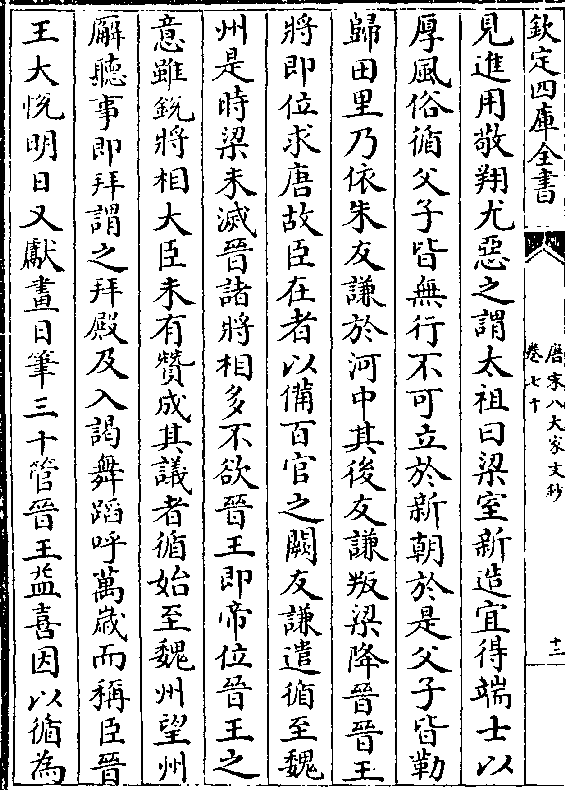 欽定四庫全書
唐宋八大家文鈔
卷七十
十二
見進用敬翔尤惡之謂太祖曰梁室新造宜得端士以
厚風俗循父子皆無行不可立於新朝於是父子皆勒
歸田里乃依朱友謙於河中其後友謙叛梁降晉晉王
將即位求唐故臣在者以備百官之闕友謙遣循至魏
州是時梁未滅晉諸將相多不欲晉王即帝位晉王之
意雖銳將相大臣未有贊成其議者循始至魏州望州
廨聽事即拜謂之拜殿及入謁舞蹈呼萬歲而稱臣晉
王大悅明日又獻畫日筆三十管晉王益喜因以循為